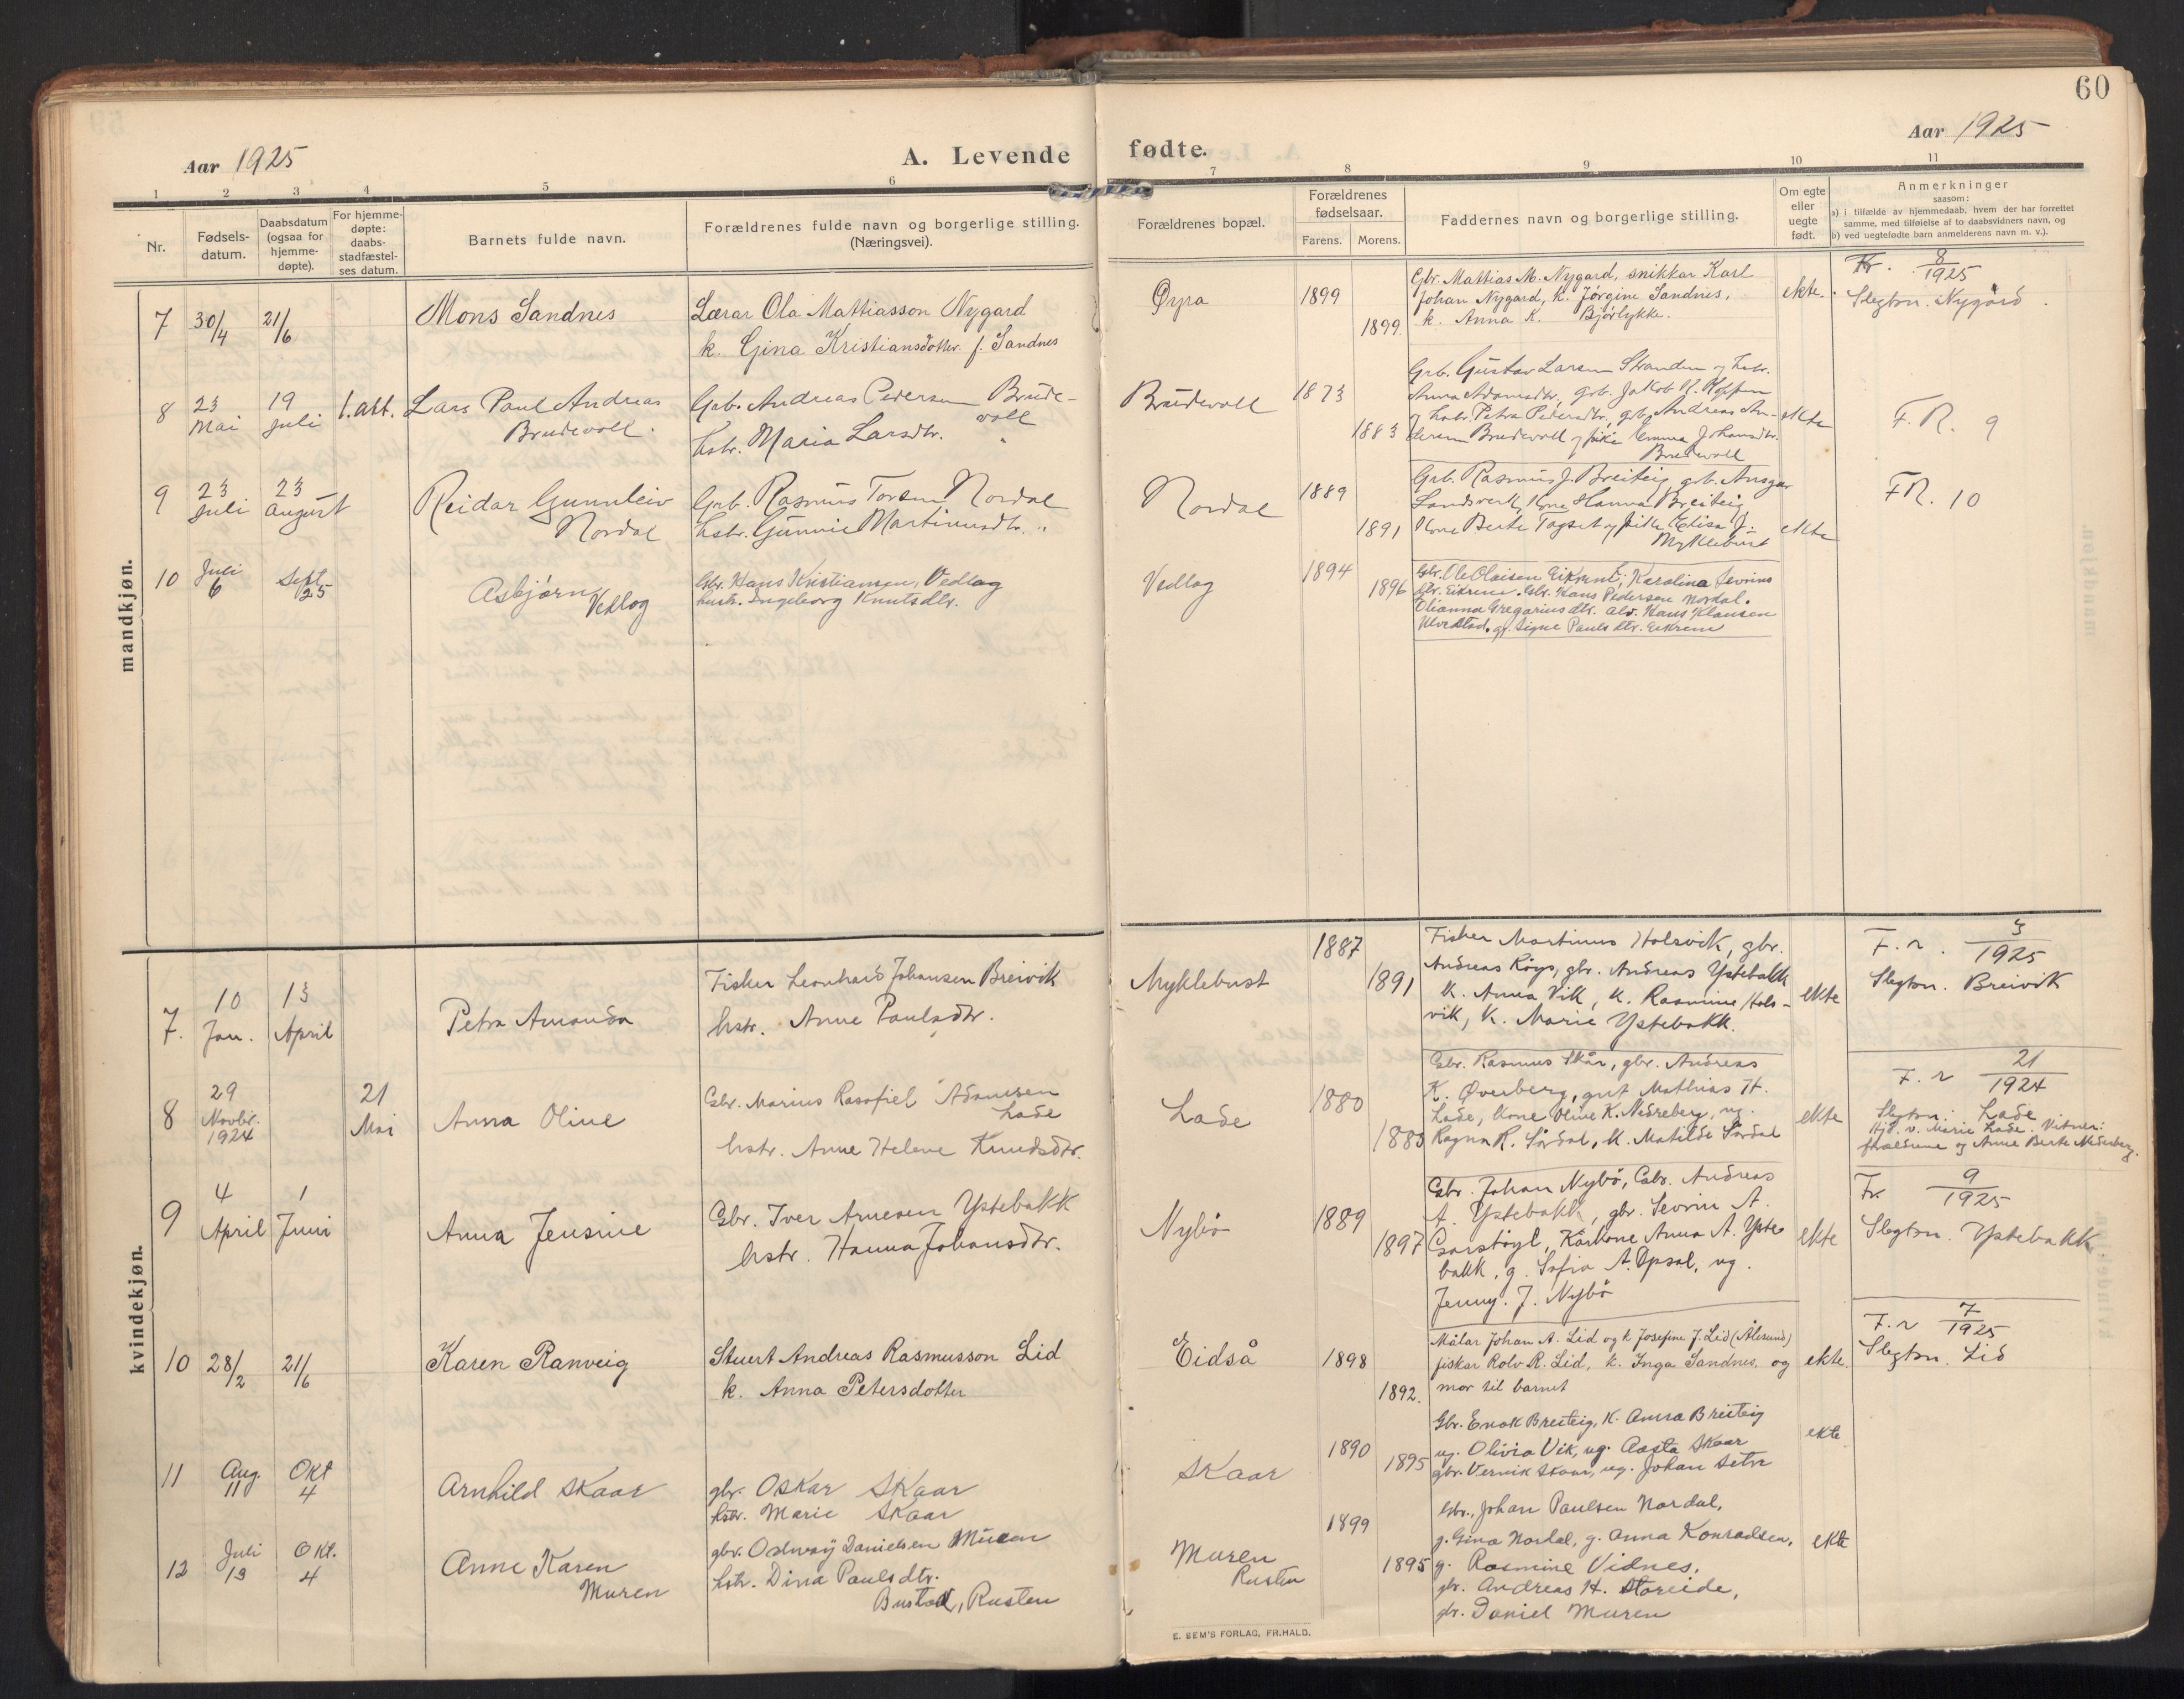 60
Aar 1925
A. Levende
fødte.
Aar 1925
1 2 3 4 5 6 7 8 9 10 11
Nr.
Fødsels-
datum.
Daabsdatum
(ogsaa for
hjemme-
døpte).
For hjemme-
døpte:
daabs-
stadfæstel-
ses datum.
Barnets fulde navn.
Forældrenes fulde navn og borgerlige stilling.
(Næringsvei).
Forældrenes bopæl.
Forældrenes
fødselsaar.
Farens. Morens.
Faddernes navn og borgerlige stilling.
Om egte
eller
uegte
født.
Anmerkninger
saasom:
a) i tilfælde av hjemmedaab, hvem der har forrettet
samme, med tilføielse af to daabsvidners navn, og
b) ved uegtefødte barn anmelderens navn m. v.).
mandkjøn.
7 30/4 21/6
Mons Sandnes
Lærar Ola Mattiasson Nygard
k. Gina Kristiansdotter f. Sandnes
Øyra
1899
1899.
Gbr. Mattias M. Nygard, snikkar Karl
Johan Nygard, k. Jørgine Sandnes,
k. Anna K. Bjørlykke.
ekte.
Fr. 8/1925
Slegtsn. Nygård.
8 23 Mai 19 Juli 1. att.
Lars Paul Andreas
Brudevoll.
Grb. Andreas Pedersen Brude-
voll
hstr. Maria Larsdtr. "
Brudevoll
1873
1883
Grb. Gustav Larsen Stranden og hstr.
Anna Adamsdtr, grb. Jakob
og hstr. Petra Pedersdtr, grb. Andreas An-
dersen Brudevoll og pike Emma Johansdtr.
Brudevoll
ekte
F. R. 9
9 23 Juli 23 August
Reidar Gunnleiv
Nordal
Grb. Rasmus Toresen Nordal
hstr. Gunnie Martinusdtr. "
Nordal
1889
1891
Grb. Rasmus J. Breiteig, grb. Ansgar
Landsverk, Kone Hanna Breiteig
Kone Berte Tagset og pike Elisa J.
Myklebust
ekte
F R. 10
10 Juli 6 Sept 25
Asbjørn
Vedlog
Gbr. Hans Kristiansen, Vedlog
hustr. Ingeborg Knutsdtr.
Vedlog
1894
1896
Gbr. Ole Olaisen Eikrem, Karolina Sevrins
dtr. Eikrem. Gbr. Hans Pedersen Nordal.
Olianna Gregarius dtr. Hans Klausen
Ulvestad. g. Signe Pauls dtr. Eikrem
kvindekjøn.
7. 10 Jan. 13 April
Petra Amanda
Fisker Leonhard Johansen Breivik
hstr. Anne Paulsdtr.
Myklebust
1887
1891
Fisker Martinus Holsvik, gbr.
Andreas Røys, gbr. Andreas Ystebakk
K. Anna Vik, K. Rasmine Hols-
vik, K. Marie Ystebakk.
ekte
F. r. 3/1925
Slegtsn. Breivik
8 29 Novbr. 1924 21 Mai
Anna Oline
Gbr. Marius Rasofiel Adamsen
Lade
hstr. Anne Helene Knudsdtr.
Lade
1880
1880
Gbr. Rasmus Skår, gbr. Andreas
K. Øverberg, gut Mathias H.
Lade, Kone Oline K. Nedreberg, ug.
Ragna R. Sørdal, K. Matilde Sørdal
ekte
F. r 21/1924
Slegtsn: Lade
Hjd. v. Marie Lade. Vitner:
foreldrene og Anne Berte Nedreberg.
9 4 April 1 Juni
Anna Jensine
Gbr. Iver Arnesen Ystebakk
hstr. Hanna Johansdtr.
Nybø
1889
1897
Gbr. Johan Nybø, Gbr. Andreas
A. Ystebakk, gbr. Sevrin A.
Garshøyl, Kårkone Anna A. Yste
bakk, g. Sofia A. Opsal, ug.
Jenny. J. Nybø
ekte
Fr. 9/1925
Slegtsn. Ystebakk.
10 28/2 21/6
Karen Ranveig
Stuert Andreas Rasmusson Lid
k. Anna Petersdotter
Eidså
1898
1892.
Målar Johan A. Lid og k Josefine J. Lid (Ålesund)
fiskar Rolv R. Lid, k. Inga Sandnes, og
mor til barnet
ekte.
F. r 7/1925
Slegtsn. Lid
11 Aug. 11 Okt 4
Arnhild Skaar
gbr. Oskar Skaar
hstr. Marie Skaar
Skaar
1890
1895
Gbr. Enok Breiteig, K. Anna Breiteig
ug. Olivia Vik, ug. Aasta Skaar
gbr. Vernik Skaar, ug. Johan Setre
ekte
12 Juli 13 Okt. 4
Anne Karen
Muren
gbr. Odmay Danielsen Muren
hstr. Dina Paulsdtr.
Bustad, Rusten
Muren
Rusten
1899
1895
Gbr. Johan Paulsen Nordal,
g. Gina Nordal, g. Anna Konradsen,
g. Rasmine Vidnes,
gbr. Andreas H. Storeide,
gbr. Daniel Muren
ekte
E. SEM'S FORLAG, FR.HALD.